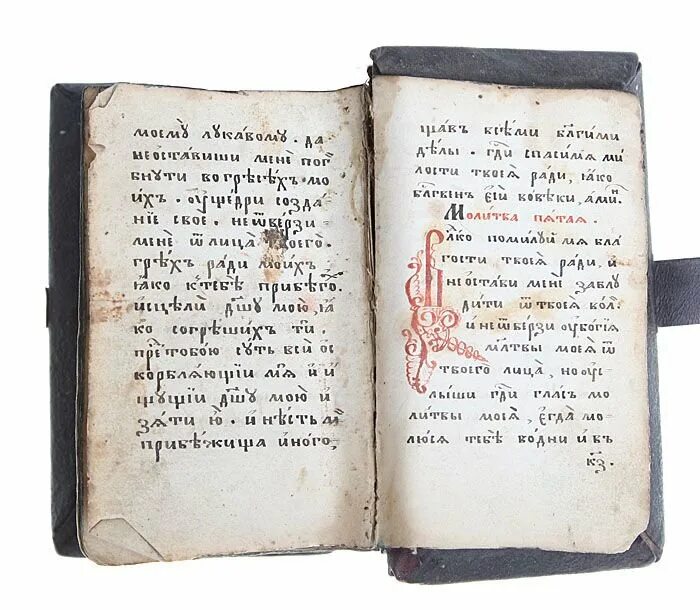 моемꙋ лꙋка́вомꙋ . да
не ѡста́виши менѐ поги́
бнꙋти во грѣсѣ́хъ мо
и́хъ . ᲂу҆ще́дри созда́
нїе своѐ . не ѿве́рзи
менѐ ѿ лица̀ твоего̀ .
грѣ́хъ ра́ди мои́хъ
ꙗ҆́ко к тебѣ̀ прибѣго́хъ .
и҆сцѣлѝ дш҃ꙋ мою̀ , ꙗ҆́
ко согрѣши́хъ тѝ .
пре́д тобо́ю сꙋ́ть всѝ ѻ҆с
корблѧ́ющїи мѧ̀ и҆ и҆́
щꙋщїи дш҃ꙋ мою̀ и҆
зѧ́ти ю҆̀ . и҆ нѣ́сть мѝ
прибѣ́жища и҆но́го ,
ща́въ всѣ́ми бл҃ги́ми
дѣ́лы . гдⷭ҇и спаси́ мѧ ми
лости твоеѧ̀ ра́ди , ꙗ҆́ко
бл҃гве́нъ є҆сѝ во вѣ́ки , а҆ми́нь
Моли́тва пѧ́таѧ .
Влⷣко поми́лꙋй мѧ бла
гости твоеѧ̀ ра́ди , и҆
не ѡста́ви менѐ заблꙋ
ди́ти ѿ твоеѧ̀ во́лѧ .
и҆ не ѿве́рзи ᲂу҆бо́гїѧ
мл҃твы моеѧ̀ ѿ
твоего̀ лица̀ , но ᲂу҆с
лы́ши гдⷭ҇и гла́съ мо
ли́твы моеѧ̀ , є҆гда̀ мо
лю́сѧ тебѣ̀ во днѝ и҆ въ
к҃з .